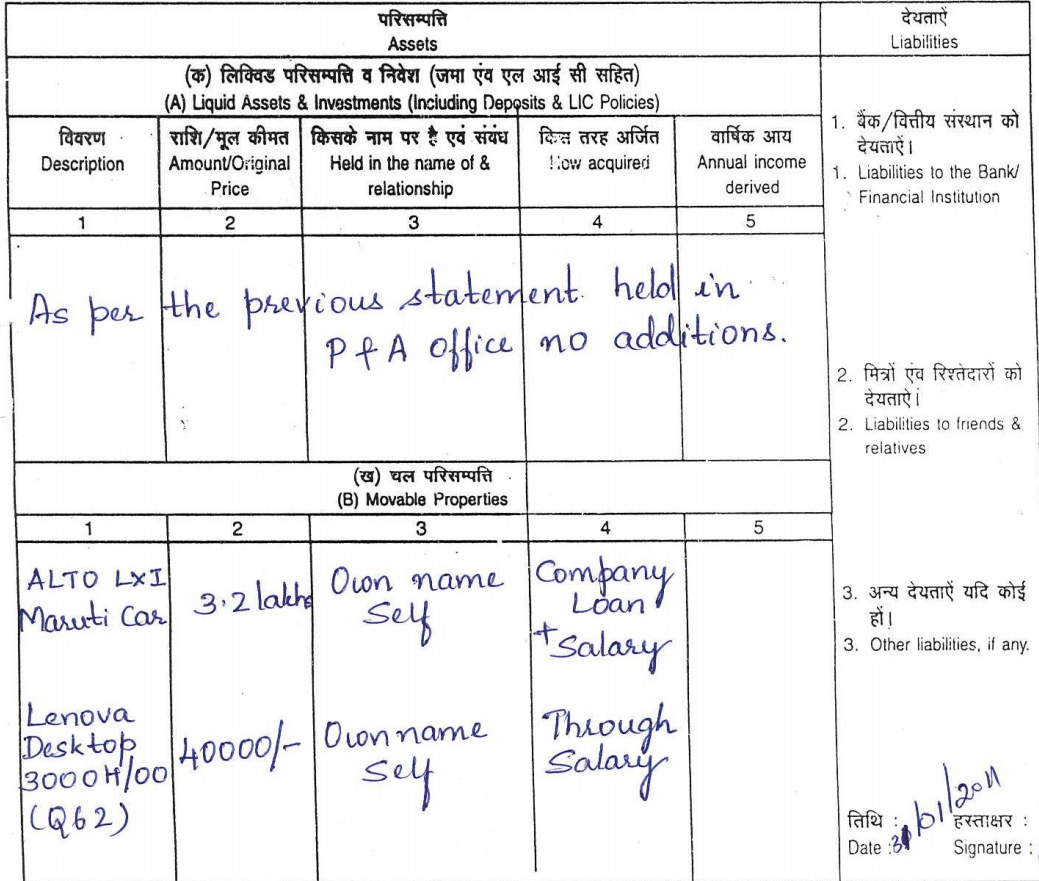 परिसम्पत्ति
Assets
देयताऐं
Liabilities
(क) लिक्विड परिसम्पत्ति व निवेश (जमा एंव एल आई सी सहित)
(A) Liquid Assets & Investments (Including Deposits & LIC Policies)
विवरण
Description
राशि/मूल कीमत
Amount/Original
Price
किसके नाम पर है एवं संवंध
Held in the name of &
relationship
किस तरह अर्जित
How acquired
वार्षिक आय
Annual income
derived
1 2 3 4 5
As per the previous statement held in
P & A office no additions.
(ख) चल परिसम्पत्ति
(B) Movable Properties
1 2 3 4 5
ALTO LXI
Maruti Car
3.2 lakhs
Own name
Self
Company
Loan
+ Salary
Lenova
Desktop
3000 H/00
(Q62)
40000/-
Own name
Self
Through
Salary
1. बैंक/वित्तीय संस्थान को
देयताऐं।
1. Liabilities to the Bank/
Financial Institution
2. मित्रों एंव रिश्तेदारों को
देयताऐ।
2. Liabilities to friends &
relatives
3. अन्य देयताऐं यदि कोई
हों।
3. Other liabilities, if any.
तिथि :
Date : /01/2011
हस्ताक्षर :
Signature :